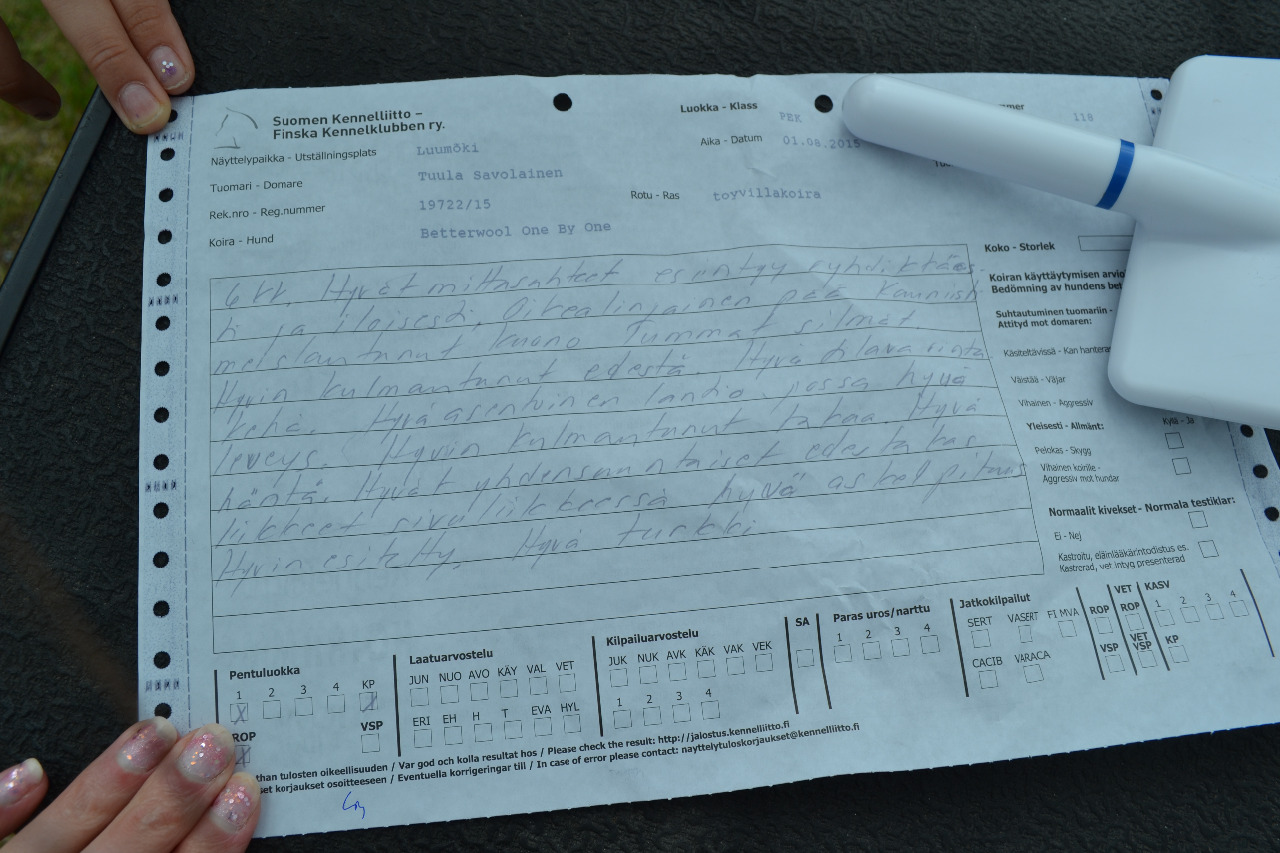 Suomen Kennelliitto –
Finska Kennelklubben ry.
Luokka - Klass PEK
mer 118
Näyttelypaikka - Utställningsplats Luumöki
Aika - Datum 01.08.2015
Tuomari - Domare Tuula Savolainen
Rek.nro - Reg.nummer 19722/15
Rotu - Ras toyvillakoira
Koira - Hund Betterwool One By One
6 kk. Hyvät mittasuhteet esiintyy ryhdikkääs
ti ja iloisesti. Oikealinjainen pää kauniisti
meislautunut kuono Tummat silmät.
Hyvin kulmautunut edestä. Hyvä tilava rinta
kehä. Hyvä asentoinen lantio jossa hyvä
leveys. Hyvin kulmautunut takaa. Hyvä
häntä. Hyvät yhdensuuntaiset edestakas
liikkeet sivuliikkeessä hyvä askelpituus
Hyvin esitetty. Hyvä turkki
Koko - Storlek
Koiran käyttäytymisen arvio
Bedömning av hundens bet
Suhtautuminen tuomariin -
Attityd mot domaren:
Käsiteltävissä - Kan hantera
Väistää - Väjar
Vihainen - Aggressiv
Yleisesti - Allmänt:
Kyllä - Ja
Pelokas - Skygg
Vihainen koirille -
Aggressiv mot hundar
Normaalit kivekset - Normala testiklar:
Ei - Nej
Kastroitu, eläinlääkärintodistus es.
Kastrerad, vet intyg presenterad
Pentuluokka
1 2 3 4 KP
ROP VSP
Laatuarvostelu
JUN NUO AVO KÄY VAL VET
ERI EH H T EVA HYL
Kilpailuarvostelu
JUK NUK AVK KÄK VAK VEK
1 2 3 4
SA
Paras uros/narttu
1 2 3 4
Jatkokilpailut
SERT VASERT FI MVA
CACIB VARACA
ROP
VSP
VET
ROP
VET
VSP
KASV
1 2 3 4
KP
than tulosten oikeellisuuden / Var god och kolla resultat hos / Please check the result: http://jalostus.kennelliitto.fi
set korjaukset osoitteeseen / Eventuella korrigeringar till / In case of error please contact: nayttelytuloskorjaukset@kennelliitto.fi